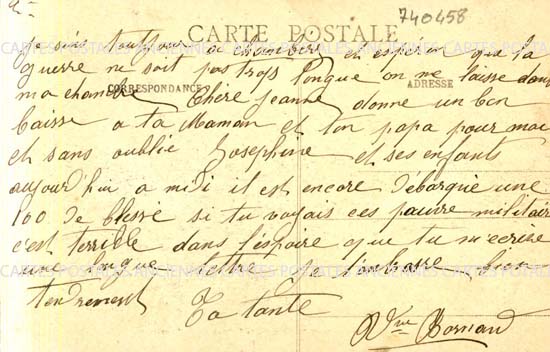 CARTE POSTALE
740458
je suis toujours a Chambery en espéran que la
guerre ne soit pas trops longue on me laisse dans
CORRESPONDANCE
ADRESSE
ma chambre Chère Jeanne donne un bon
baisse a ta Maman et ton papa pour moi
et sans oublié Josephine et ses enfants
aujord'hui a midi il est encore débarqué une
100 de blessé si tu voyais ces pauvre militaire
c'est terrible dans l'espoire que tu m'ecrise
une longue lettre je t'embrasse bien
tendrement Ta tante
Vve
CARTES POSTALES ANCIENNES